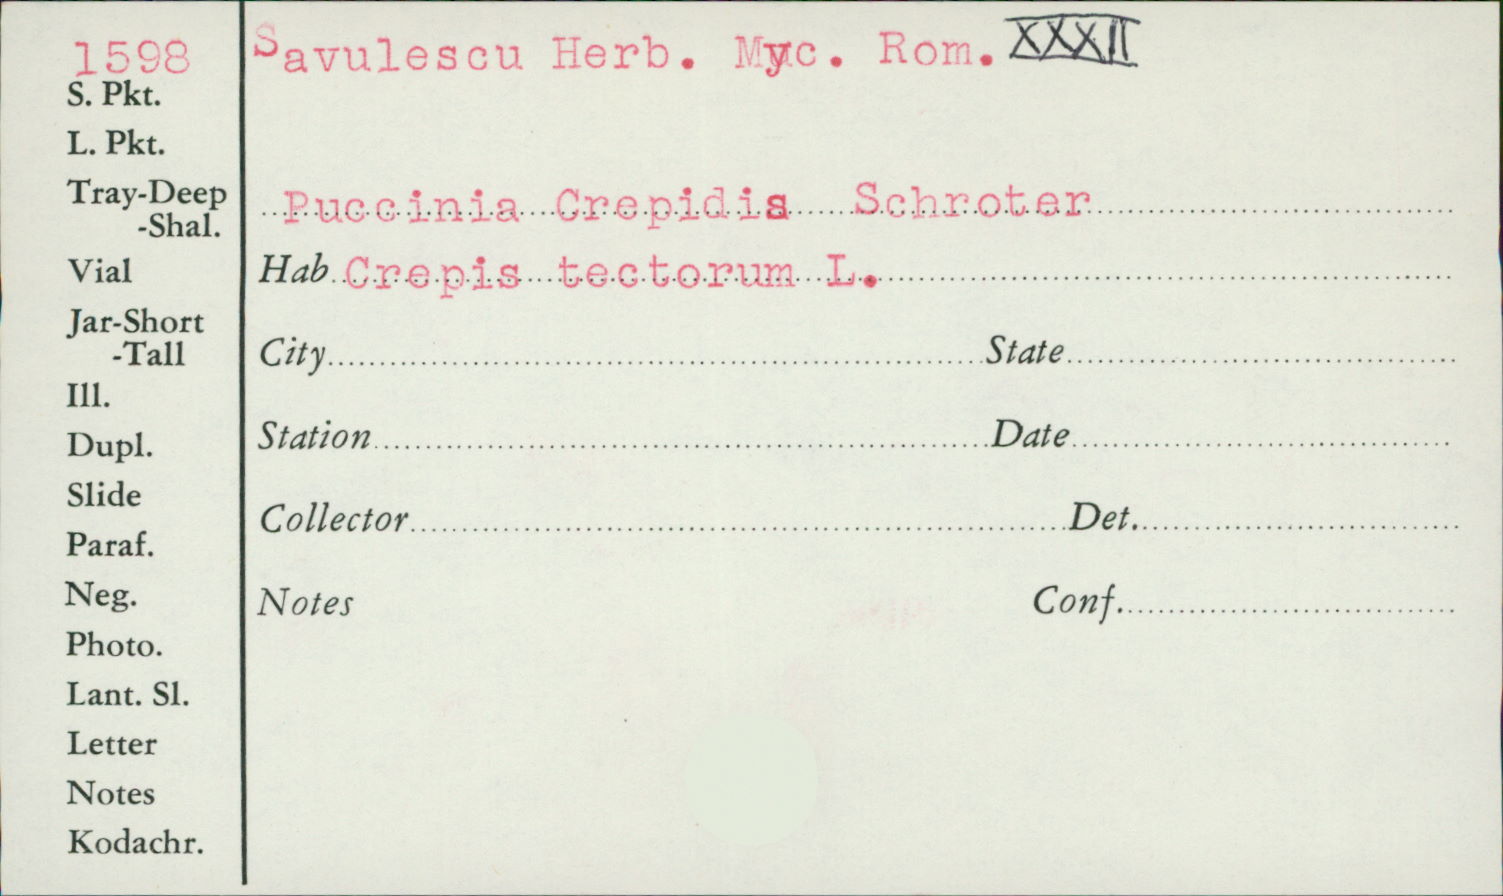 1598
Savulescu Herb. Myc. Rom. XXXII
S. Pkt.
L. Pkt.
Tray-Deep
-Shal.
Puccinia Crepidis Schroter
Vial
Hab Crepis tectorum L.
Jar-Short
-Tall
City State
Ill.
Dupl.
Station Date
Slide
Collector Det.
Paraf.
Neg.
Notes Conf.
Photo.
Lant. Sl.
Letter
Notes
Kodachr.